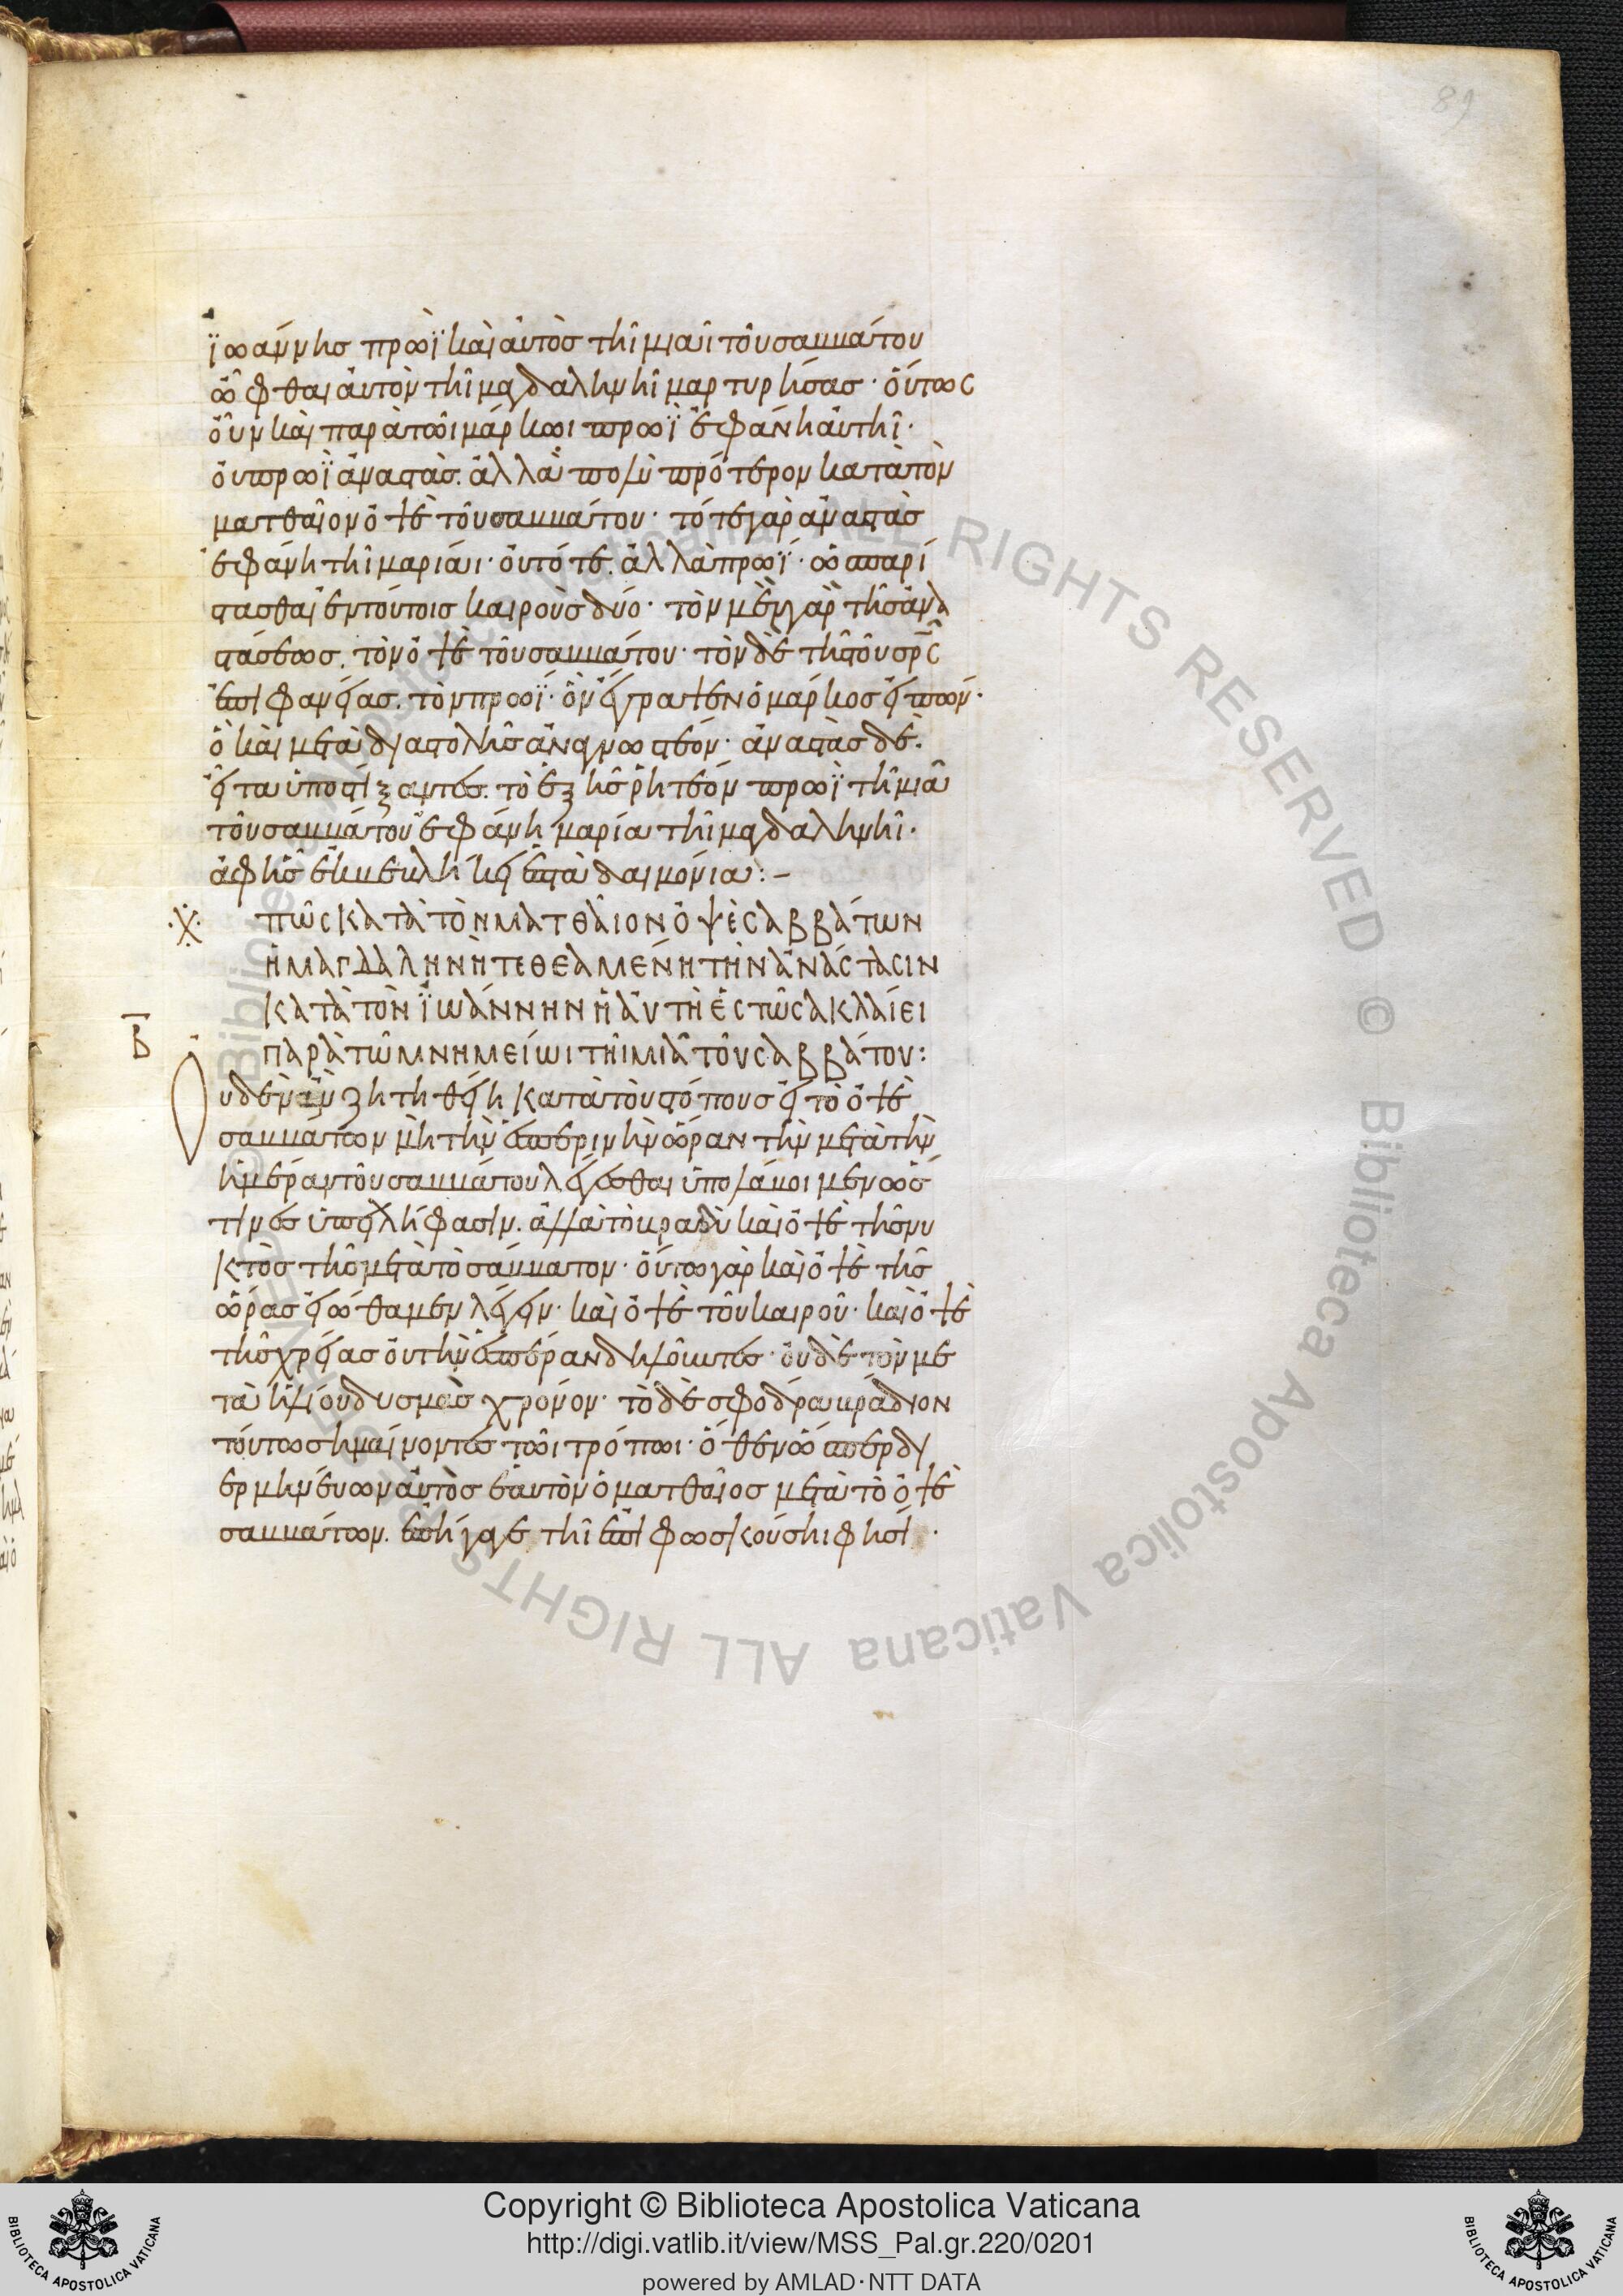 89
ϊωάννης πρωῒ καὶ αὐτὸς τῆι μιᾶι τοῦ σαββάτου
ὦφθαι αὐτὸν τῆι μαγδαληνῆι μαρτυρήσας· οὕτως
οὖν καὶ παρὰ τῶι μάρκωι πρωῒ ἐφάνη αὐτῆι·
οὐ πρωῒ ἀναστὰς. ἀλλὰ πολὺ πρότερον κατὰ τὸν
ματθαῖον ὀψὲ τοῦ σαββάτου· τότε γὰρ ἀναστὰς
ἐφάνη τῆι μαρίαι· οὐ τότε. ἀλλὰ πρωΐ· ὡς παρί
στασθαι ἐν τούτοις καιροὺς δύο· τὸν μὲν γὰρ τῆς ἀνα
στάσεως. τὸν ὀψὲ τοῦ σαββάτου· τὸν δὲ τῆς τοῦ σρ̅ς
ἐπιφανείας. τὸν πρωΐ· ὃν ἔγραψεν ὁ μάρκος εἰπὼν·
ὃ καὶ μετὰ διαστολῆς ἀναγνωστέον· ἀναστὰς δὲ.
εἶτα ὑποστίξαντες. τὸ ἑξῆς ῥητέον πρωῒ τῆι μιᾶ
τοῦ σαββάτου ἐφάνη μαρία τῆι μαγδαληνῆι·
ἀφ ἧς ἐκβεβλήκει ἑπτὰ δαιμόνια:–
πῶς κατὰ τὸν ματθαῖον ὀψὲ σαββάτων
ἡ μαγδαληνὴ τεθεαμένη τὴν ἀνάστασιν
κατὰ τὸν ϊωάννην ἡ αὐτὴ ἑστῶσα κλαίει
Β̅ παρὰ τῶ μνημείωι τῆι μιᾶ τοῦ σαββάτου:
Οὐδὲν ἂν ζητηθείη κατὰ τοὺς τόπους εἰ τὸ ὀψὲ
σαββάτων μὴ τὴν ἑσπερινὴν ὥραν τὴν μετὰ τὴν
ἡμέραν τοῦ σαββάτου λέγεσθαι ὑπολάβοιμεν ὥς
τινες ὑπειλήφασιν. ἀλλὰ τὸ βραδὺ καὶ ὀψὲ τῆς νυ
κτὸς τῆς μετὰ τὸ σάββατον· οὕτω γὰρ καὶ ὀψὲ τῆς
ὥρας εἰώθαμεν λέγειν· καὶ ὀψὲ τοῦ καιροῦ· καὶ ὀψὲ
τῆς χρείας οὐ τὴν ἑσπέραν δηλοῦντες· οὐδὲ τὸν με
τὰ ἡλίου δυσμὰς χρόνον· τὸ δὲ σφόδρα βράδιον
τούτω σημαίνοντες τῶι τρόπωι· ὅθεν ὥσπερ δι
ερμηνεύων αὐτὸς ἑαυτὸν ὁ ματθαῖος μετὰ τὸ ὀψὲ
σαββάτων. ἐπήγαγε τῆι ἐπιφωσκούσηι φησὶ·
© Biblioteca Apostolica Vaticana ALL RIGHTS RESERVED © Biblioteca Apostolica Vaticana ALL RIGHTS RESERVED
BIBLIOTECA APOSTOLICA VATICANA
Copyright © Biblioteca Apostolica Vaticana
http://digi.vatlib.it/view/MSS_Pal.gr.220/0201
powered by AMLAD·NTT DATA
BIBLIOTECA APOSTOLICA VATICANA